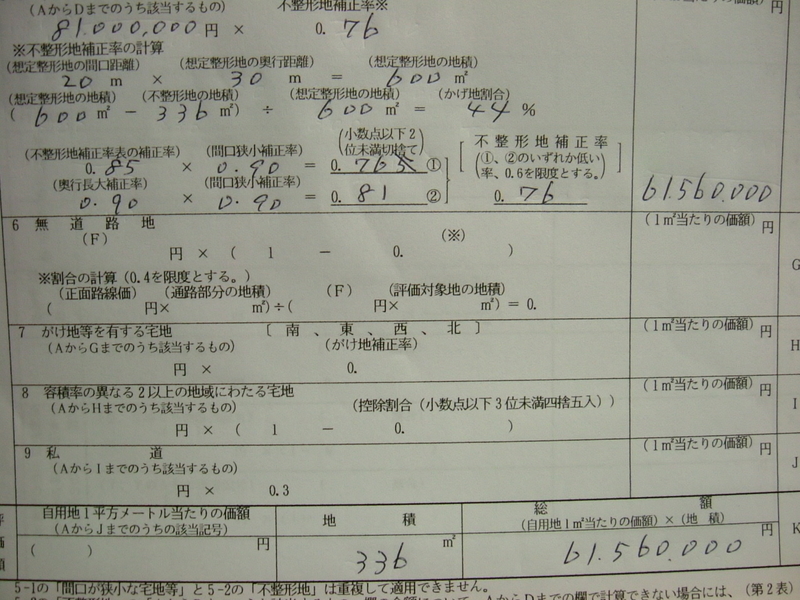 (AからDまでのうち該当するもの) 不整形地補正率※
81.000,000 円 × 0. 76 円
※不整形地補正率の計算
(想定整形地の間口距離) (想定整形地の奥行距離) (想定整形地の地積)
20 m × 30 m = 600 ㎡
(想定整形地の地積) (不整形地の地積) (想定整形地の地積) (かげ地割合)
( 600 ㎡ − 336 ㎡) ÷ 600 ㎡ = 44 %
(小数点以下2位未満切捨て) 不整形地補正率
(不整形地補正率表の補正率) (間口狭小補正率) (①、②のいずれか低い率、0.6を限度とする。)
0. 85 × 0.90 = 0. 765 ①
(奥行長大補正率) (間口狭小補正率)
0.90 × 0.90 = 0. 81 ② 0. 76 61.560.000
6 無道路地 (1㎡当たりの価額) 円
(F) (※)
円 × ( 1 − 0. )
※割合の計算(0.4を限度とする。) G
(正面路線価) (通路部分の地積) (F) (評価対象地の地積)
( 円× ㎡)÷( 円× ㎡) = 0.
7 がけ地等を有する宅地 〔 南 、 東 、 西 、 北 〕 (1㎡当たりの価額) 円
(AからGまでのうち該当するもの) (がけ地補正率) H
円 × 0.
8 容積率の異なる2以上の地域にわたる宅地 (1㎡当たりの価額) 円
(AからHまでのうち該当するもの) (控除割合(小数点以下3位未満四捨五入)) I
円 × ( 1 − 0. )
9 私道 (1㎡当たりの価額) 円
(AからIまでのうち該当するもの) J
円 × 0.3
自用地1平方メートル当たりの価額 地積 総額
(AからJまでのうちの該当記号) (自用地1㎡当たりの価額)×(地 積)
( ) 円 336 ㎡ 61.560.000 円 K
評価額
5-1の「間口が狭小な宅地等」と5-2の「不整形地」は重複して適用できません。
AからDまでの欄で計算できない場合には、(第2表)